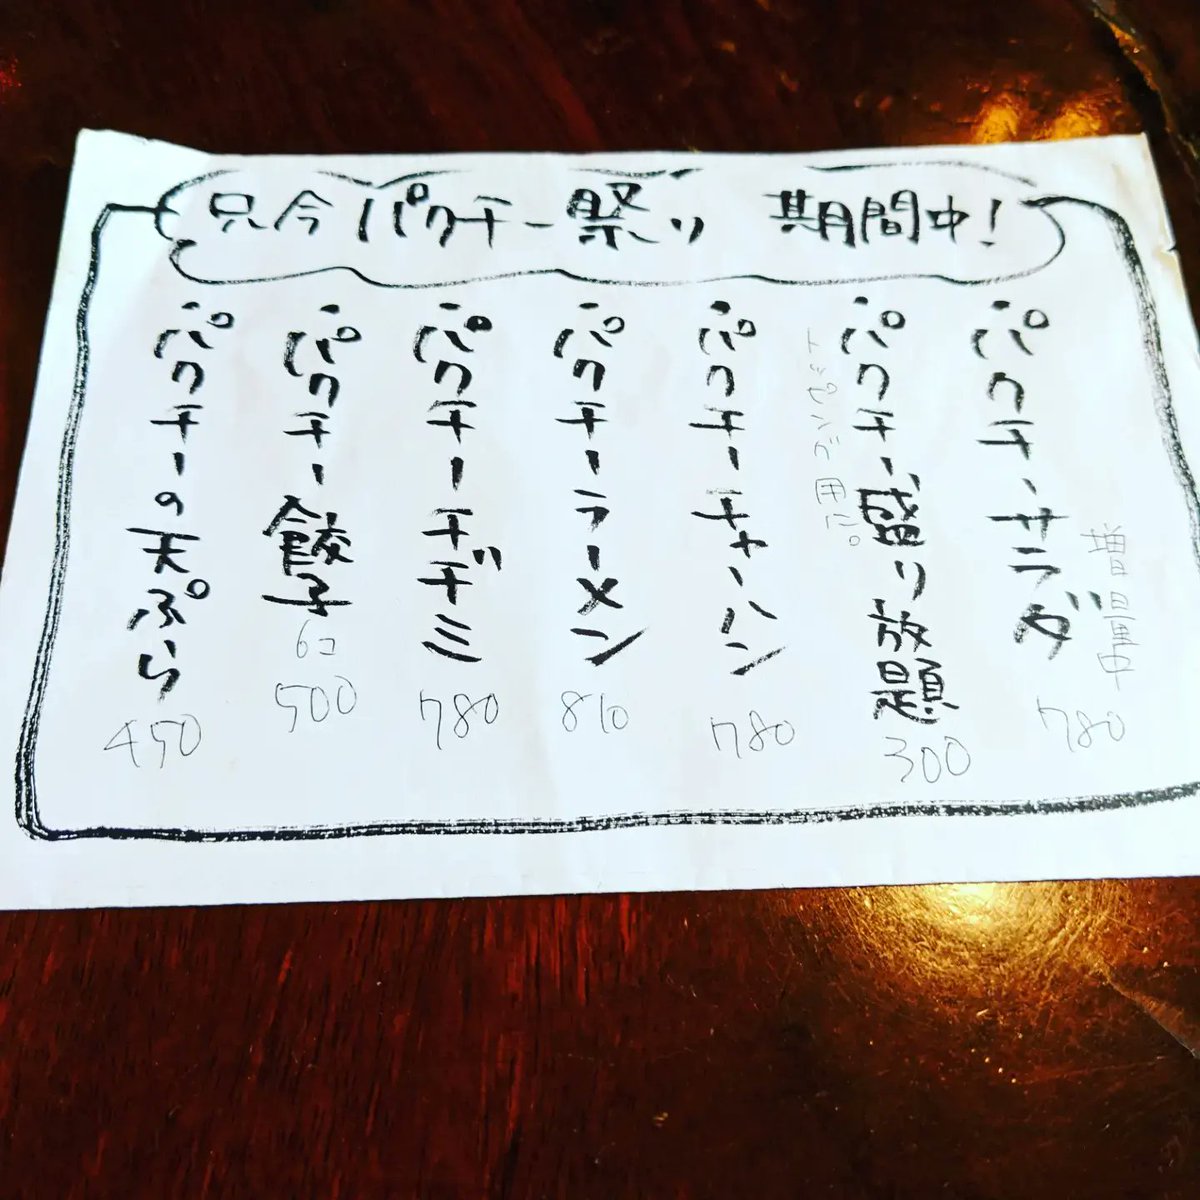 只今パクチー祭り 期間中!
パクチーサラダ
増量中
780
パクチー盛り放題
300
パクチーチャーハン
780
パクチーラーメン
810
パクチーチヂミ
780
パクチー餃子
6コ
500
パクチーの天ぷら
450